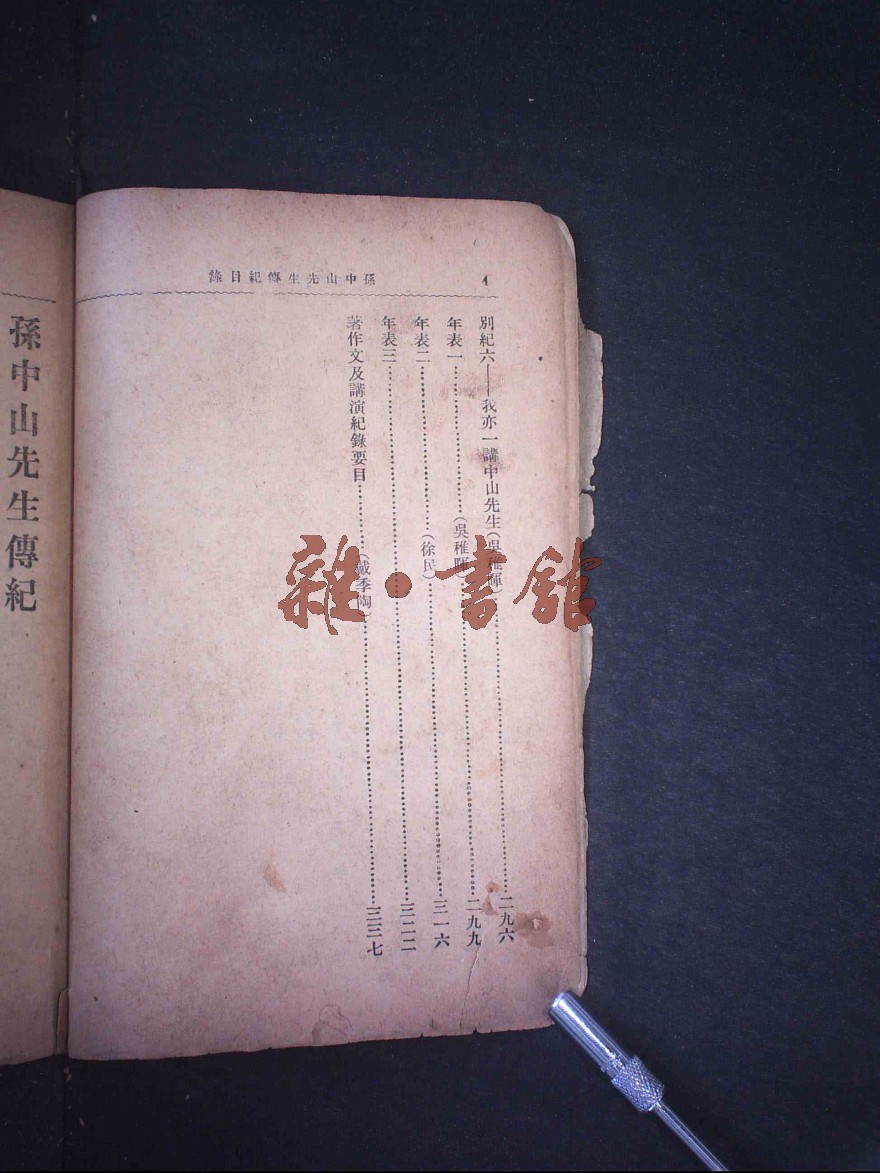 孫中山先生傳紀目錄 4
別紀六——我亦一講中山先生(吳稚暉)……二九六
年表一……(吳稚暉)……二九九
年表二……(徐民)……三一六
年表三……三二二
著作文及講演紀錄要目……(戴季陶)……三三七
孫中山先生傳紀
雜·書館